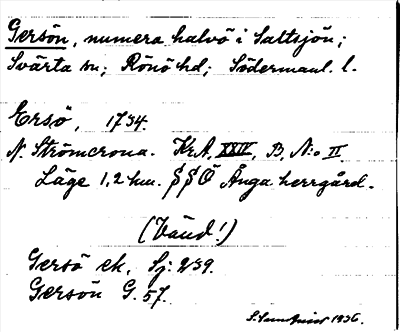 Gersön, numera halvö i Saltsjön;
Svärta sn; Rönö hd; Södermanl. l.
Ersö, 1734.
N. Strömcrona. KrA, XXIV, B, N:o II
Läge 1,2 km. SSÖ Ånga herrgård.
(Vänd!)
Gersö ek, Sj: 239.
Gersön G. 57.
1936.